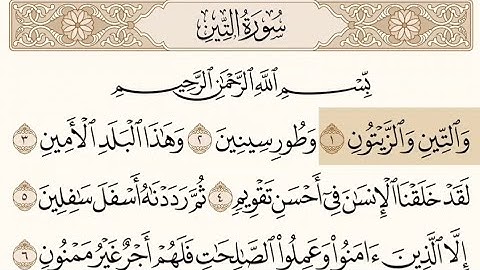 سُورَةُ التِّينِ
بِسْمِ اللَّهِ الرَّحْمَٰنِ الرَّحِيمِ
وَالتِّينِ وَالزَّيْتُونِ ١ وَطُورِ سِينِينَ ٢ وَهَٰذَا الْبَلَدِ الْأَمِينِ ٣
لَقَدْ خَلَقْنَا الْإِنسَانَ فِي أَحْسَنِ تَقْوِيمٍ ٤ ثُمَّ رَدَدْنَاهُ أَسْفَلَ سَافِلِينَ ٥
إِلَّا الَّذِينَ ءَامَنُوا وَعَمِلُوا الصَّالِحَاتِ فَلَهُمْ أَجْرٌ غَيْرُ مَمْنُونٍ ٦